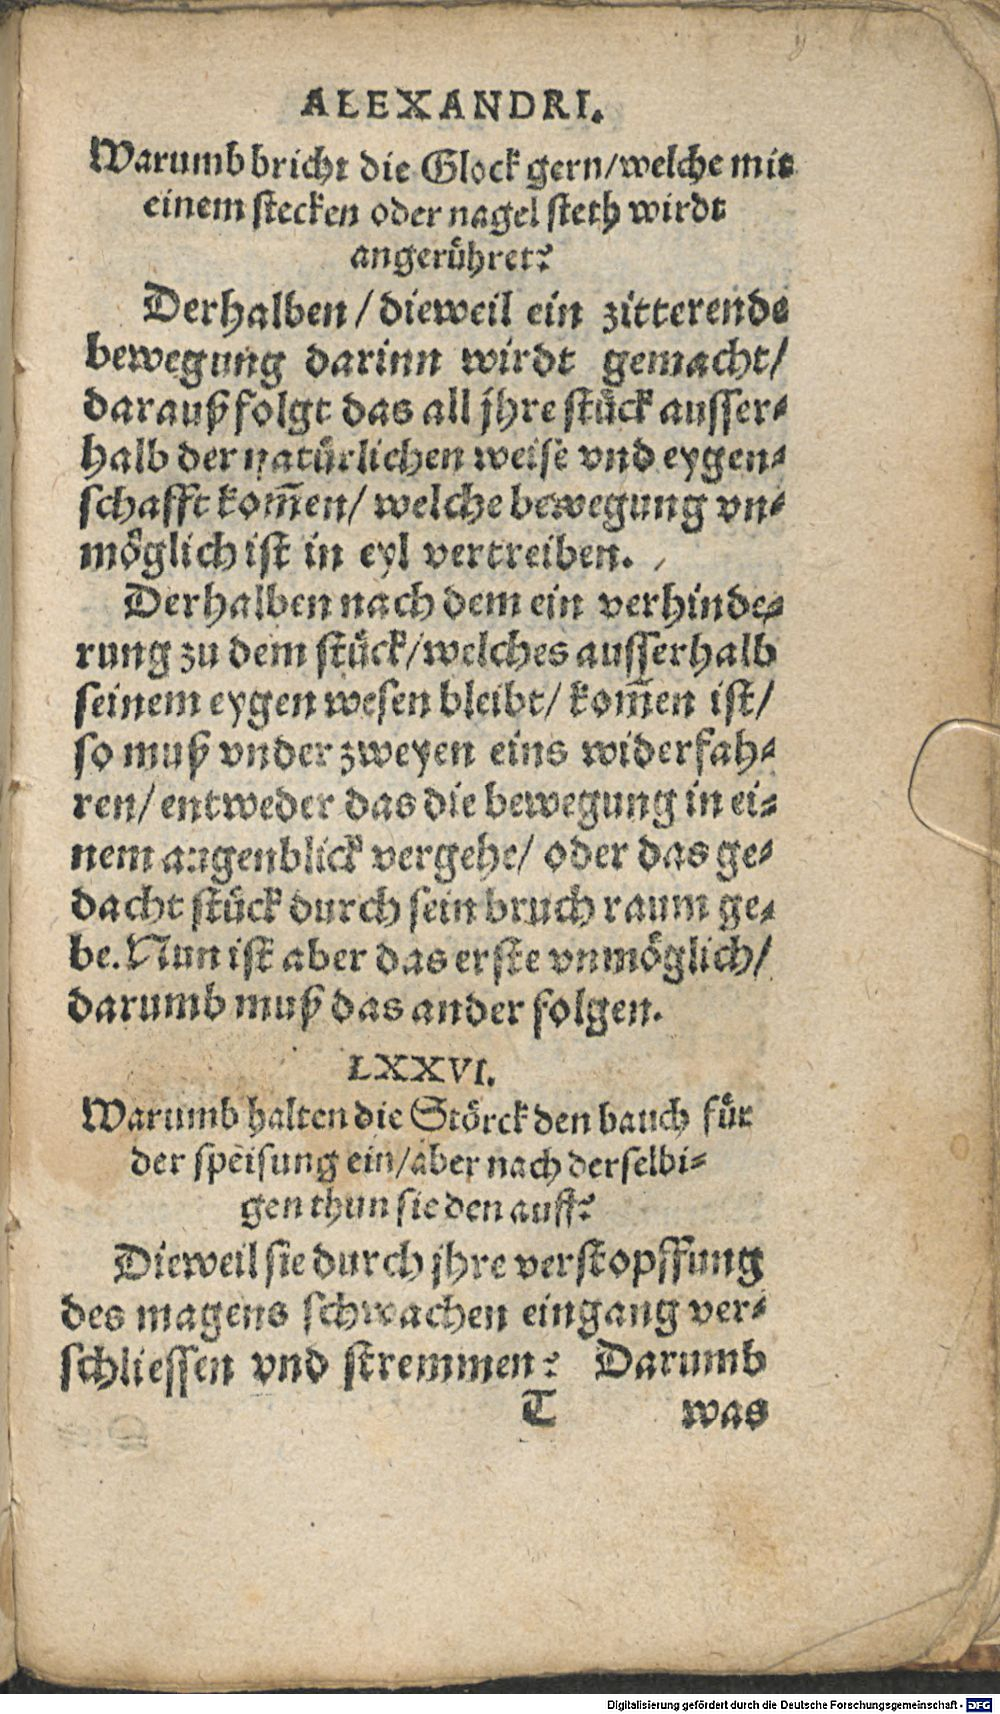 ALEXANDRI.
Warumb bricht die Glock gern/welche mit
einem stecken oder nagel steth wirdt
angerůhret?
Derhalben/dieweil ein zitterende
bewegung darinn wirdt gemacht/
darauß folgt das all jhre stůck ausser-
halb der natůrlichen weise vnd eygen-
schafft kom̃en/ welche bewegung vn-
můglich ist in eyl vertreiben.
Derhalben nach dem ein verhinde-
rung zu dem stůck/welches ausserhalb
seinem eygen wesen bleibt/ kom̃en ist/
so muß vnder zweyen eins widerfah-
ren/ entweder das die bewegung in ei-
nem augenblick vergehe/ oder das ge-
dacht stůck durch sein bruch raum ge-
be. Nun ist aber das erste vnmöglich/
darumb muß das ander folgen.
LXXVI.
Warumb halten die Störck den bauch fůr
der speisung ein/aber nach derselbi-
gen thun sie den auff?
Dieweil sie durch jhre verstopffung
des magens schwachen eingang ver-
schliessen vnd stremmen? Darumb
T was
Digitalisierung gefördert durch die Deutsche Forschungsgemeinschaft - DFG